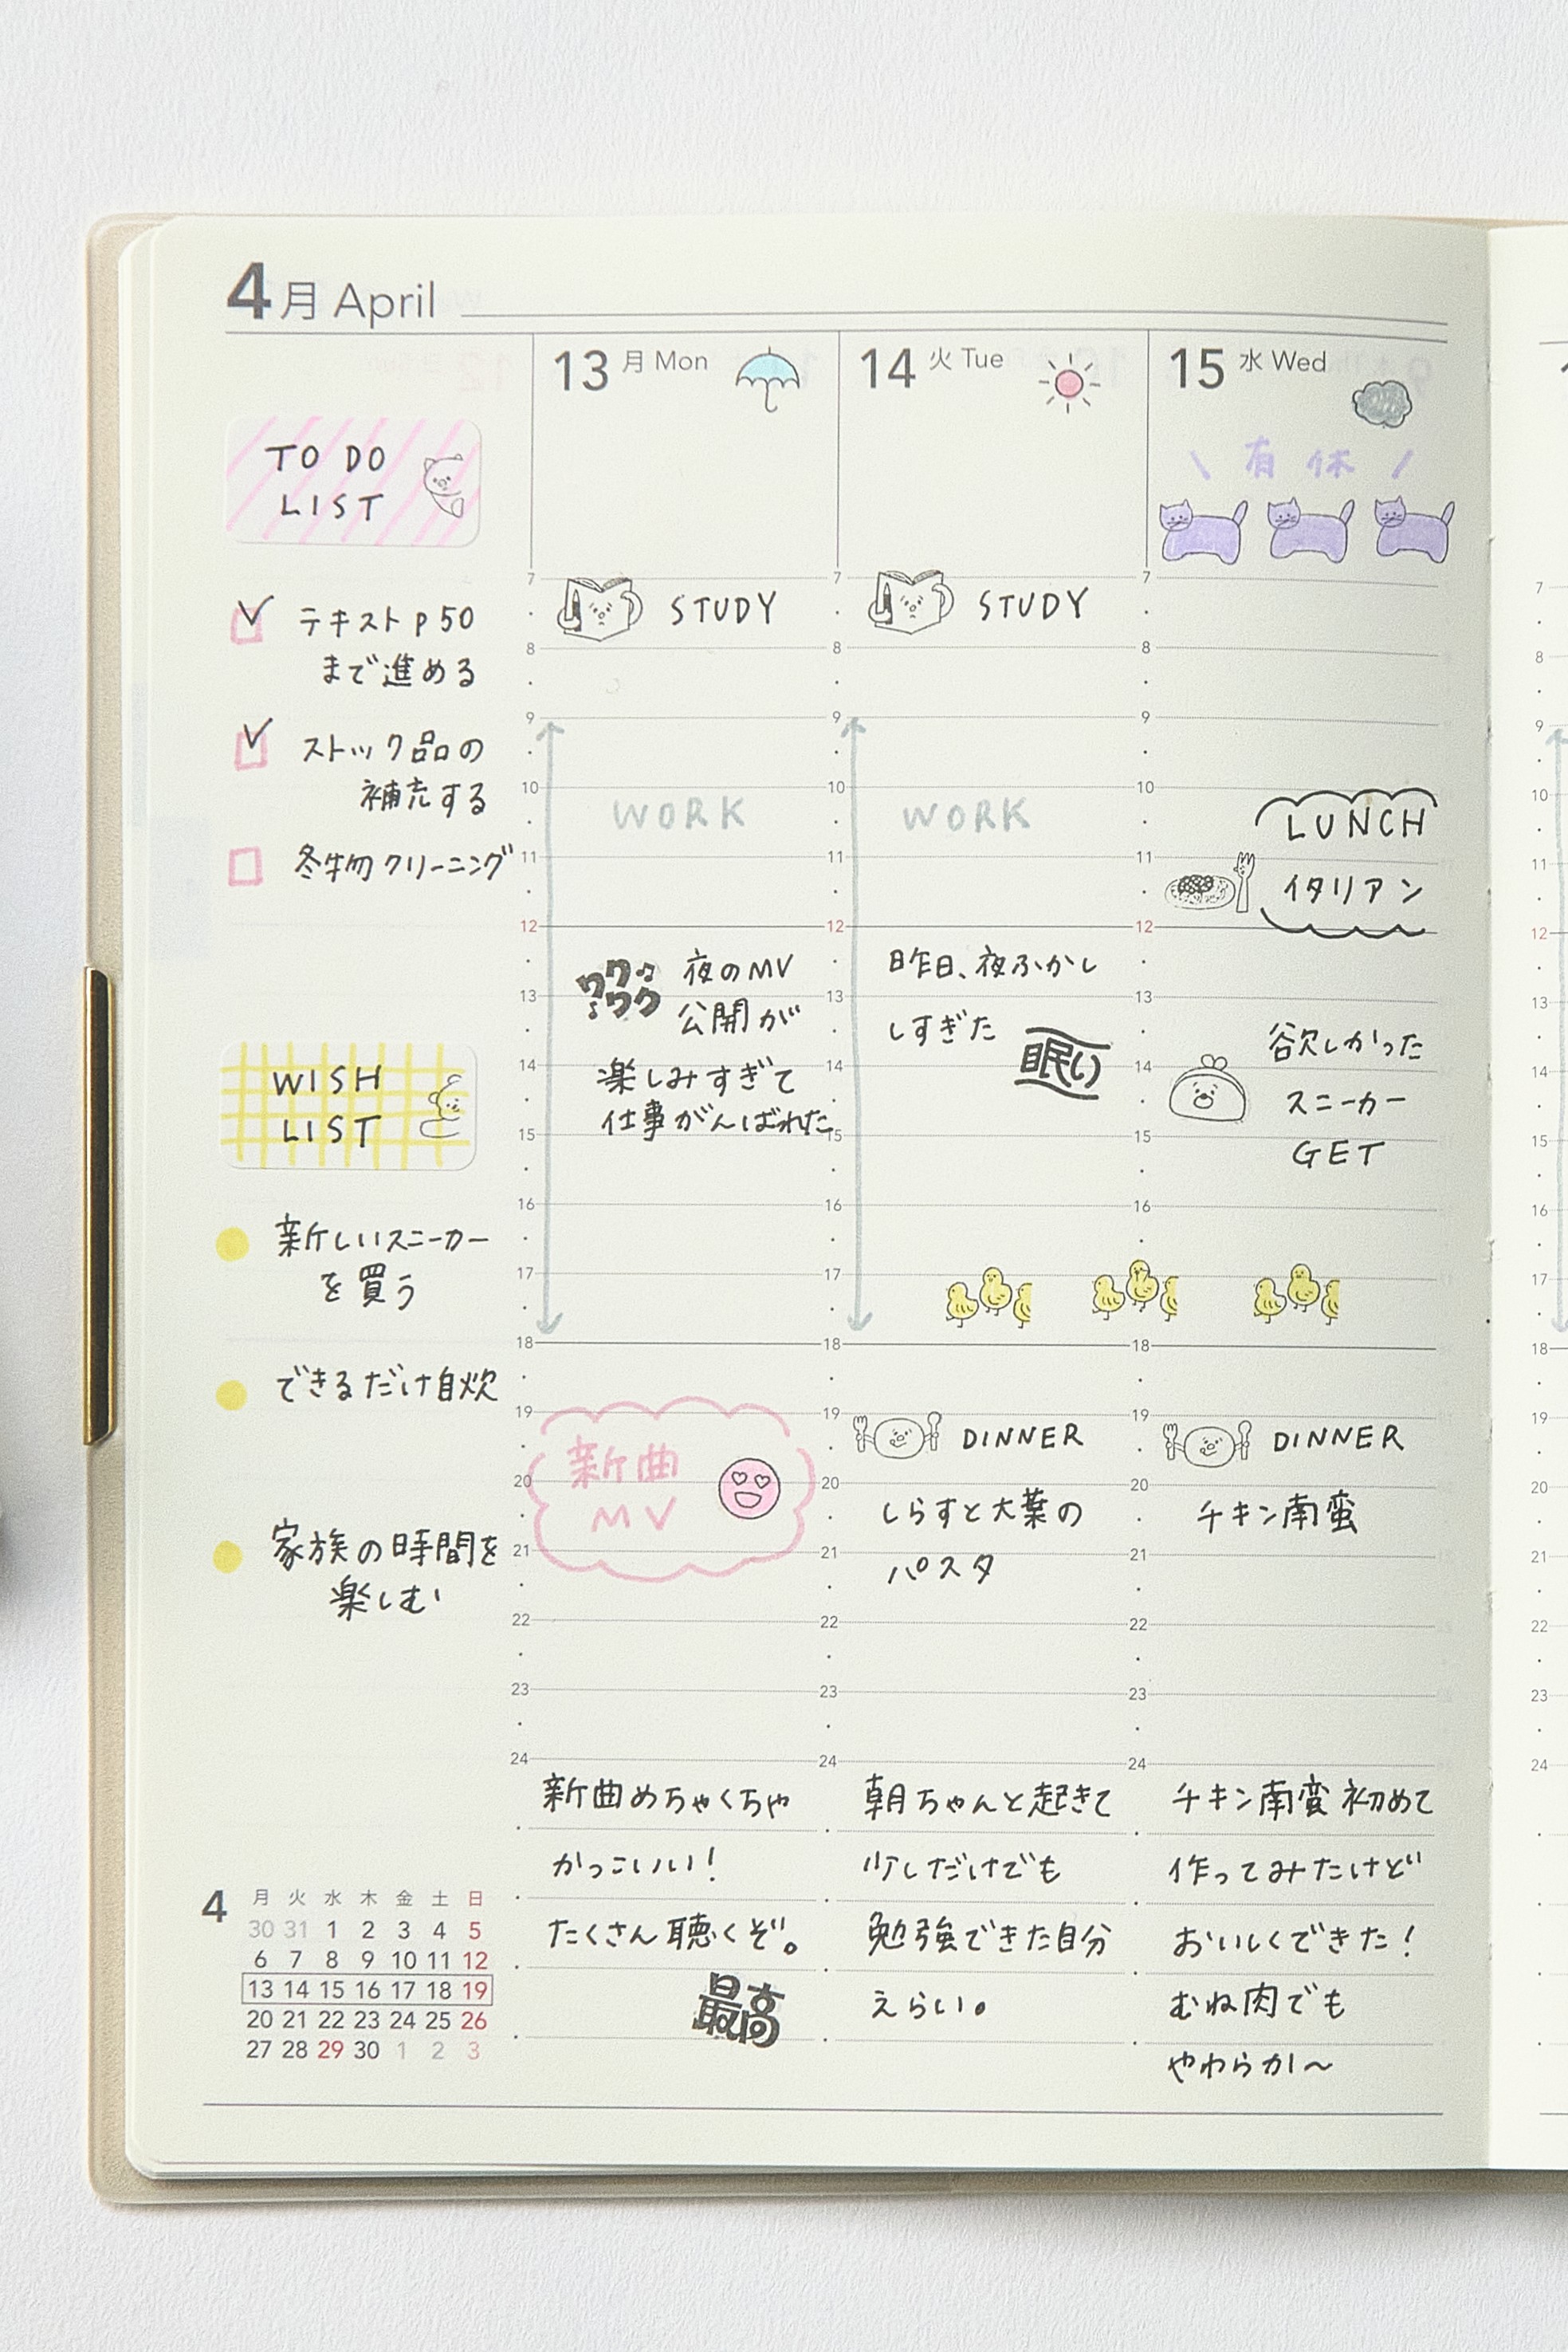 4月 April
TO DO
LIST
テキスト p 50
まで進める
ストック品の
補充する
冬物クリーニング
WISH
LIST
新しいスニーカー
を買う
できるだけ自炊
家族の時間を
楽しむ
4
月 火 水 木 金 土 日
30 31 1 2 3 4 5
6 7 8 9 10 11 12
13 14 15 16 17 18 19
20 21 22 23 24 25 26
27 28 29 30 1 2 3
13 月 Mon
7
8
9
10
11
12
13
14
15
16
17
18
19
20
21
22
23
24
STUDY
WORK
ワクワク
夜のMV
公開が
楽しみすぎて
仕事がんばれた
新曲
MV
新曲めちゃくちゃ
かっこいい!
たくさん聴くぞ。
最高
14 火 Tue
7
8
9
10
11
12
13
14
15
16
17
18
19
20
21
22
23
24
STUDY
WORK
昨日、夜ふかし
しすぎた
眠い
DINNER
しらすと大葉の
パスタ
朝ちゃんと起きて
少しだけでも
勉強できた自分
えらい。
15 水 Wed
\ 有休 /
7
8
9
10
11
12
13
14
15
16
17
18
19
20
21
22
23
24
LUNCH
イタリアン
欲しかった
スニーカー
GET
DINNER
チキン南蛮
チキン南蛮 初めて
作ってみたけど
おいしくできた!
むね肉でも
やわらかい〜
7
8
9
10
11
12
13
14
15
16
17
18
19
20
21
22
23
24